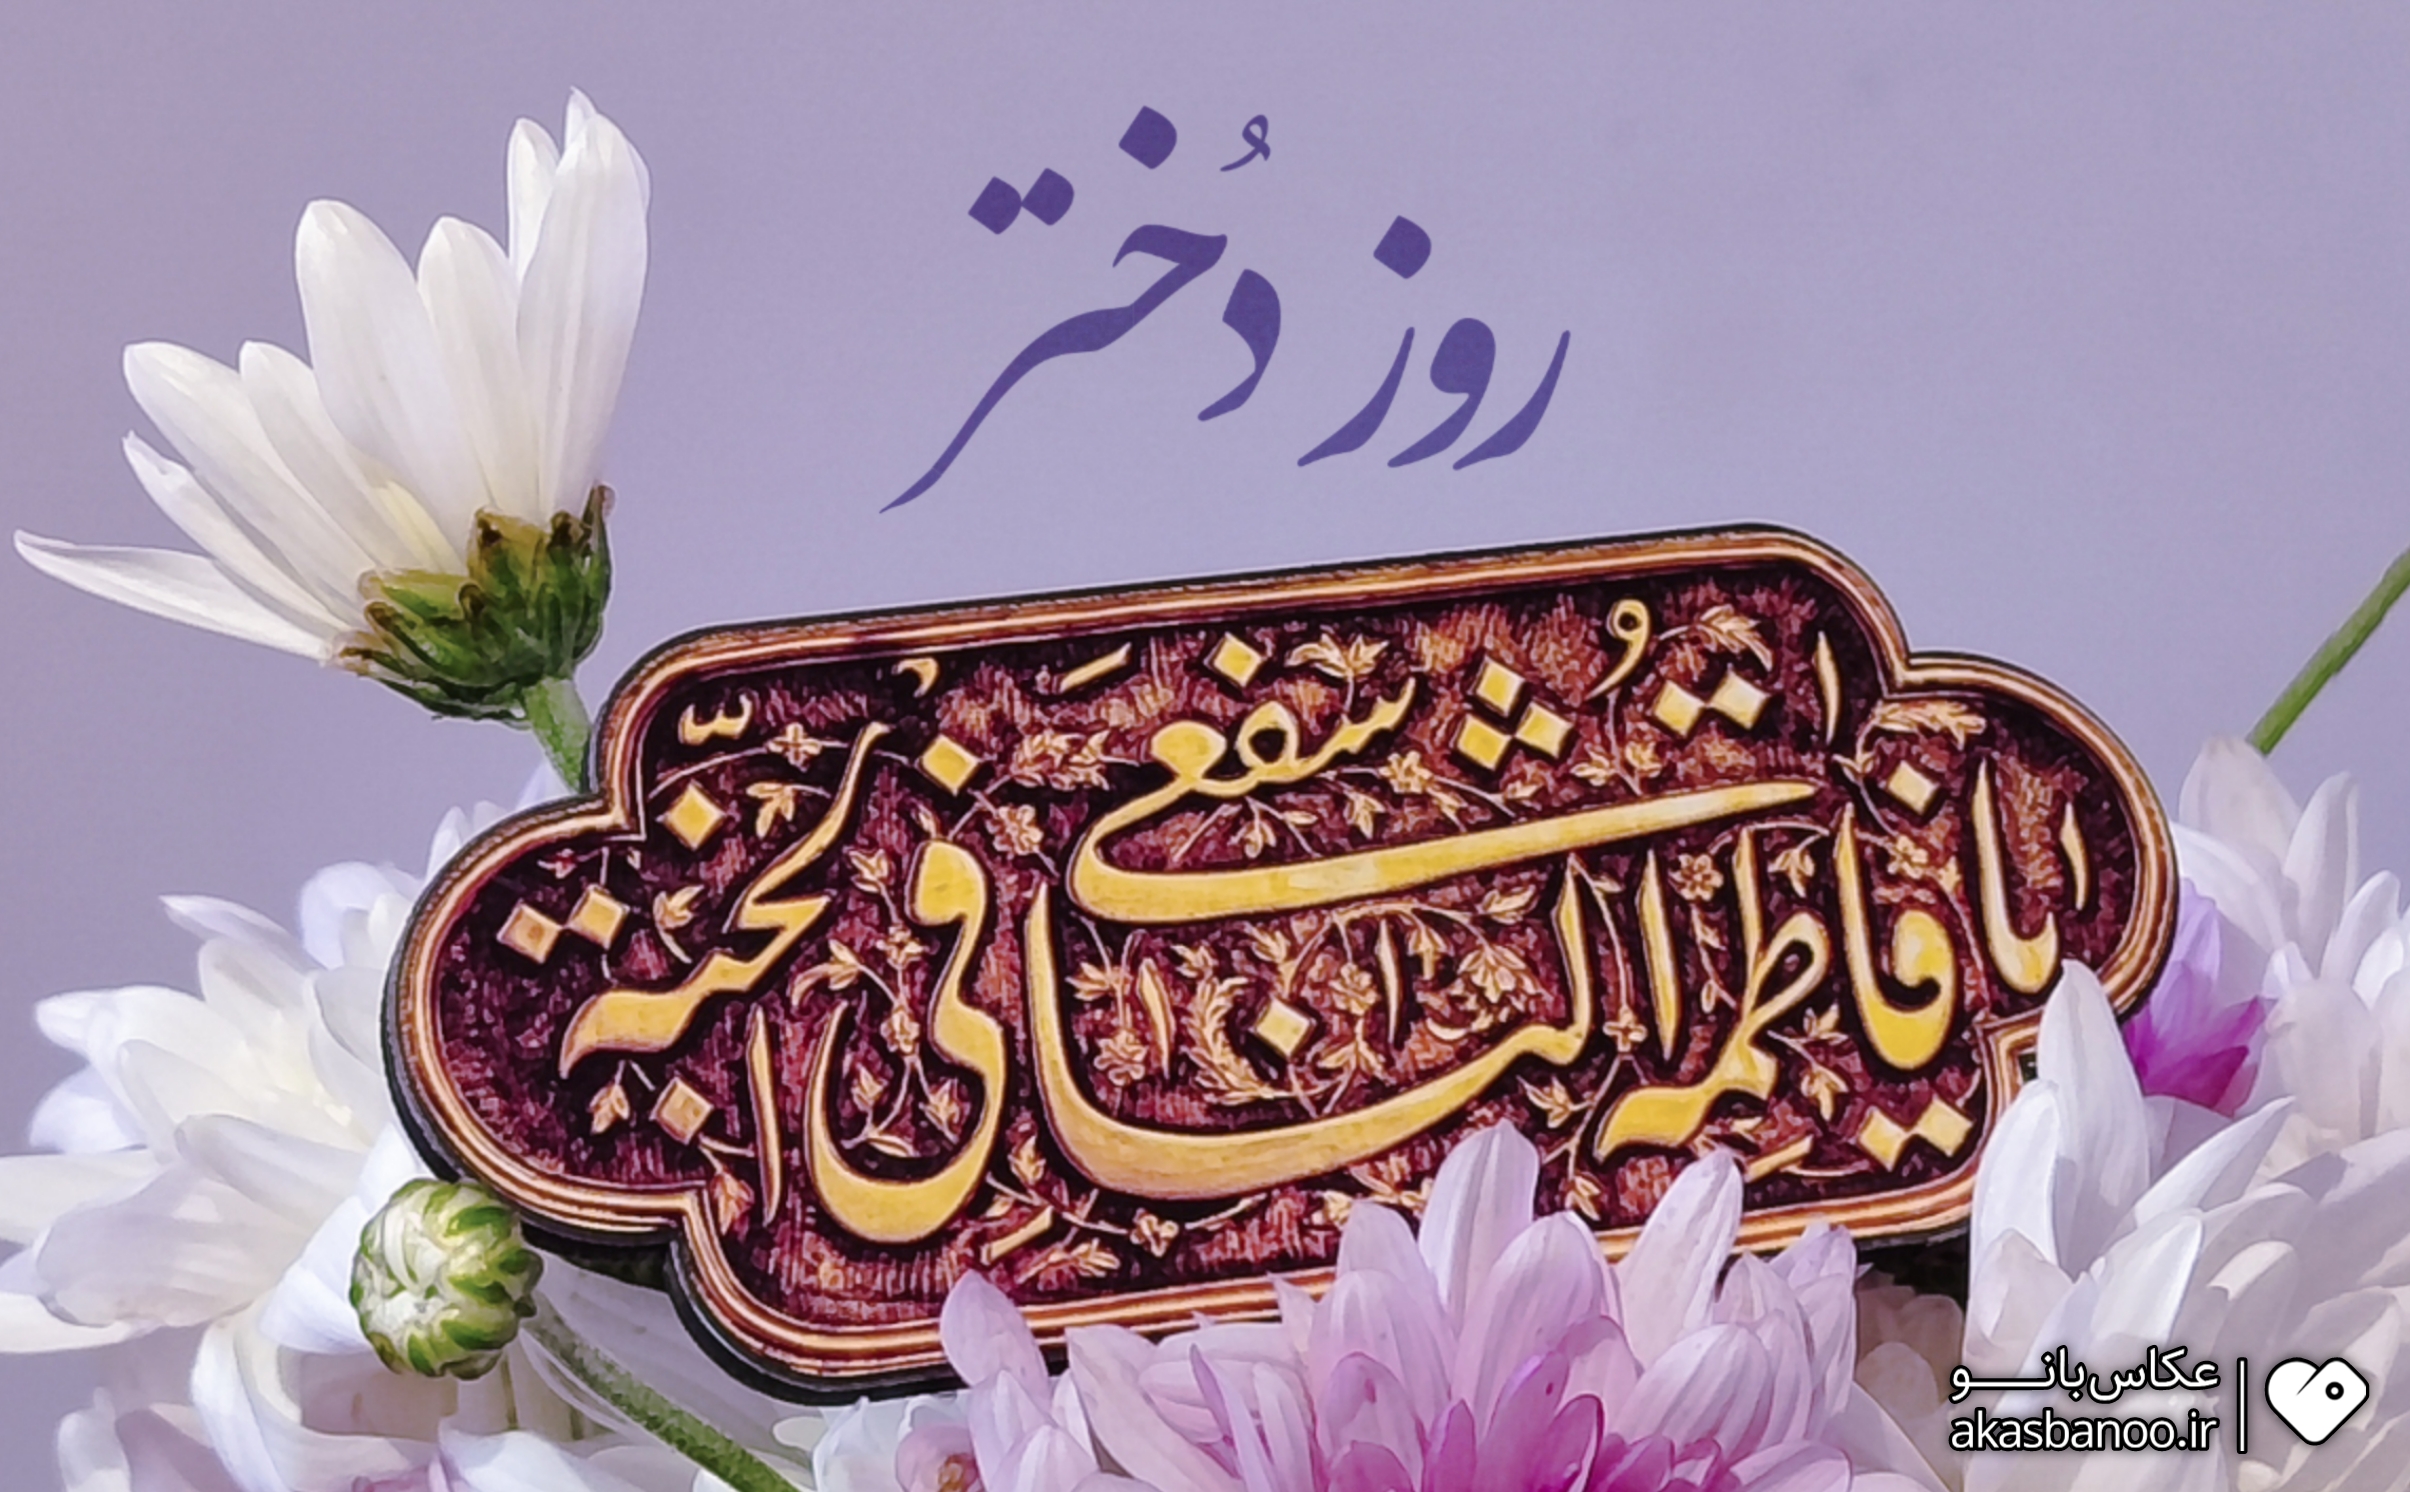 روز دُختر
یا فاطمة اشفعی لنا فی الجنة
عکاس‌بانو
akasbanoo.ir